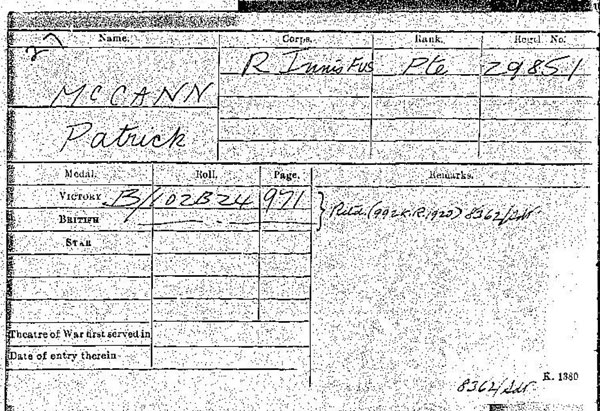 Name. Corps. Rank. Regtl. No.
R Innis Fus Pte 29851
McCANN
Patrick
Medal. Roll. Page. Remarks.
VICTORY B/102B24 971
BRITISH
Retd. (992 K.R. 1920) 8362/Adt.
STAR
Theatre of War first served in
Date of entry therein
K. 1380
8362/Adt.